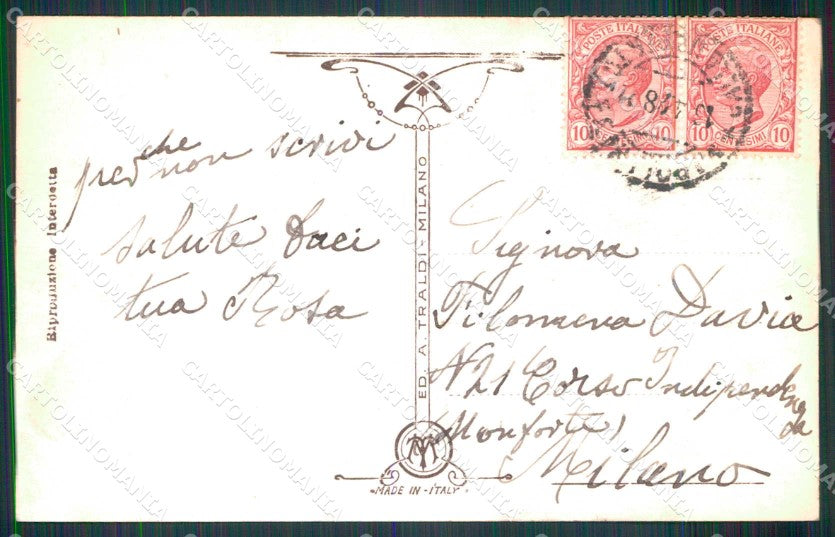 POSTE ITALIANE
POSTE ITALIANE
10 CENTESIMI 10
10 CENTESIMI 10
che
per non scrivi
salute baci
tua Rosa
Riproduzione Interdetta
ED. A. TRALDI - MILANO
MADE IN - ITALY
Signora
Filomena Davice
N 21 Corso Indipendenza
(Monforte)
Milano
CARTOLINOMANIA